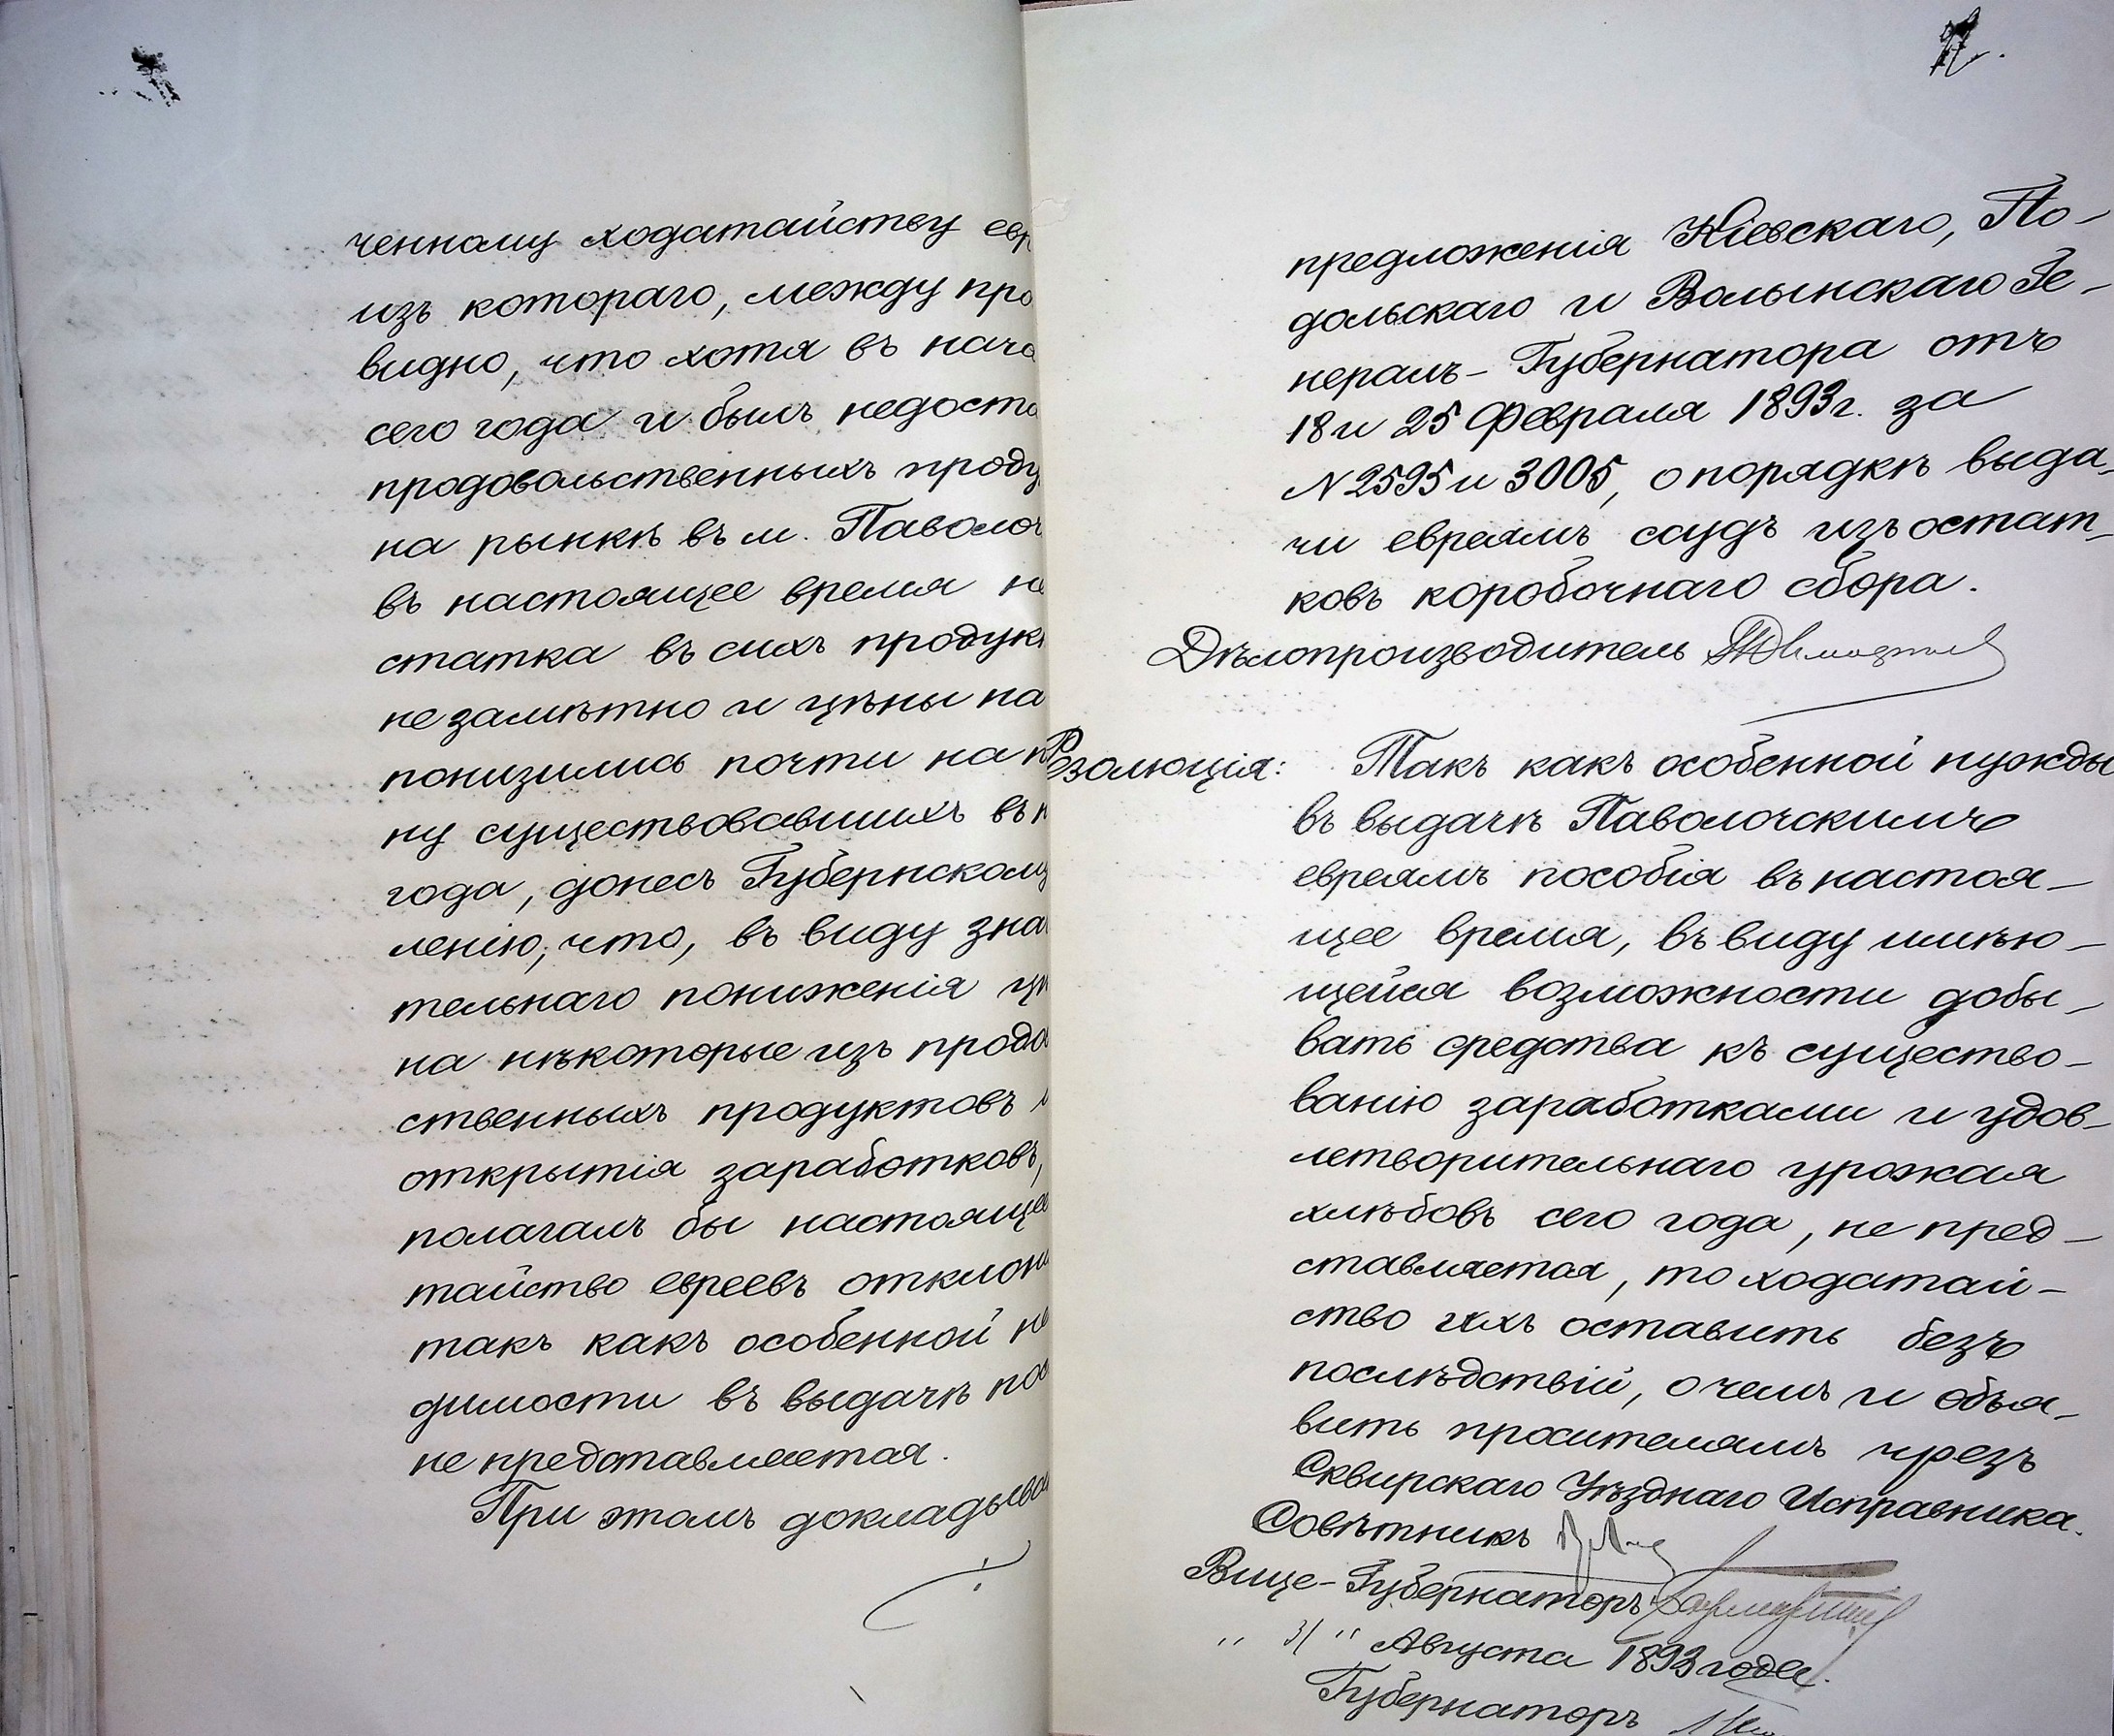 ченному ходатайству евр
изъ котораго, между про
видно, что хотя въ нача
сего года и былъ недоста
продовольственныхъ проду
на рынкѣ въ м. Паволоч
въ настоящее время не
статка въ сихъ продук
не замѣтно и цѣны на
понизились почти на
ну существовавшихъ въ
года, донесъ Губернскому
ленію, что, въ виду зна
тельнаго пониженія цѣ
на нѣкоторые изъ продо
ственныхъ продуктовъ и
открытія заработковъ,
полагалъ бы настоящее
тайство евреевъ отклони
такъ какъ особенной не
димости въ выдачѣ пос
не представляется.
При этомъ докладыва
предложенія Кіевскаго, По-
дольскаго и Волынскаго Ге-
нералъ-Губернатора отъ
18 и 25 Февраля 1893 г. за
N 2595 и 3005, о порядкѣ выда-
чи евреямъ ссудъ изъ остат-
ковъ коробочнаго сбора.
Дѣлопроизводитель
Резолюція: Такъ какъ особенной нужды
въ выдачѣ Паволочскимъ
евреямъ пособія въ настоя-
щее время, въ виду имѣю-
щейся возможности добы-
вать средства къ существо-
ванію заработками и удов-
летворительнаго урожая
хлѣбовъ сего года, не пред-
ставляется, то ходатай-
ство ихъ оставить безъ
послѣдствій, о чемъ и объя-
вить просителямъ чрезъ
Сквирскаго Уѣзднаго Исправника.
Совѣтникъ
Вице-Губернаторъ
" 31 " Августа 1893 года.
Губернаторъ